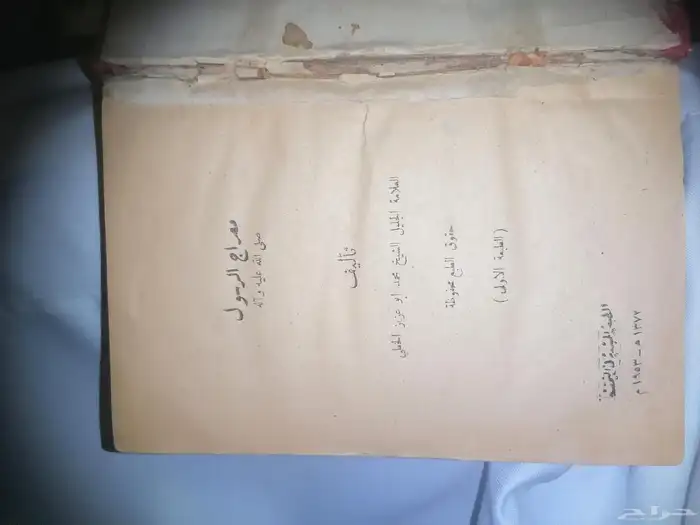 معراج الرسول
صلى الله عليه وآله
تأليف
العلامة الجليل الشيخ محمد ابو عزيز الخطي
حقوق الطبع محفوظة
( الطبعة الاولى )
المطبعة الحيدرية في النجف
١٣٧٢ هـ - ١٩٥٣ م
حراج